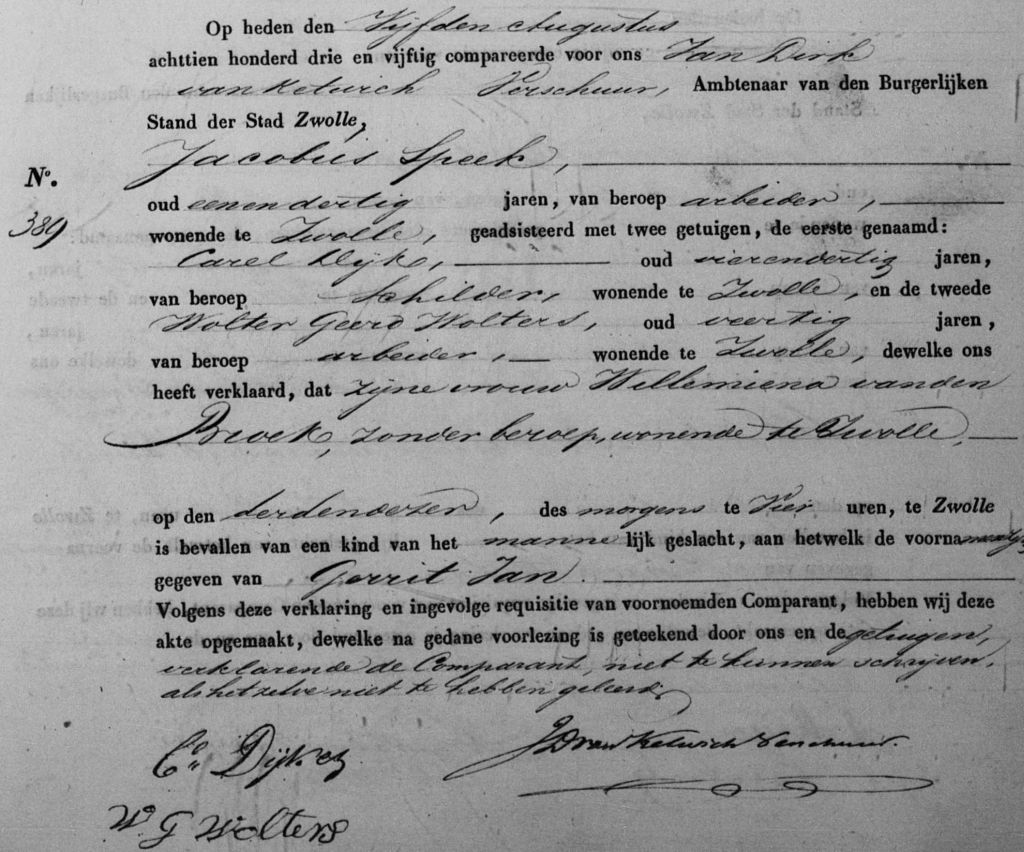 Op heden den Vijfden Augustus
achttien honderd drie en vijftig compareerde voor ons Jan Dirk
van Ketwich Verschuur, Ambtenaar van den Burgerlijken
Stand der Stad Zwolle,
Jacobus Speek,
No.
389
oud eenendertig jaren, van beroep arbeider,
wonende te Zwolle, geadsisteerd met twee getuigen, de eerste genaamd:
Carel Dijks, oud vierendertig jaren,
van beroep Schilder, wonende te Zwolle, en de tweede
Wolter Geerd Wolters, oud veertig jaren,
van beroep arbeider, wonende te Zwolle, dewelke ons
heeft verklaard, dat zijne vrouw Willemiena van den
Broek, zonder beroep, wonende te Zwolle,
op den derden dezer, des morgens te Vier uren, te Zwolle
is bevallen van een kind van het mannelijk geslacht, aan hetwelk de voorna
gegeven van Gerrit Jan.
Volgens deze verklaring en ingevolge requisitie van voornoemden Comparant, hebben wij deze
akte opgemaakt, dewelke na gedane voorlezing is geteekend door ons en de getuigen,
verklarende de Comparant, niet te kunnen schrijven,
als hetzelve niet te hebben geleerd.
JD van Ketwich Verschuur.
W G Wolters